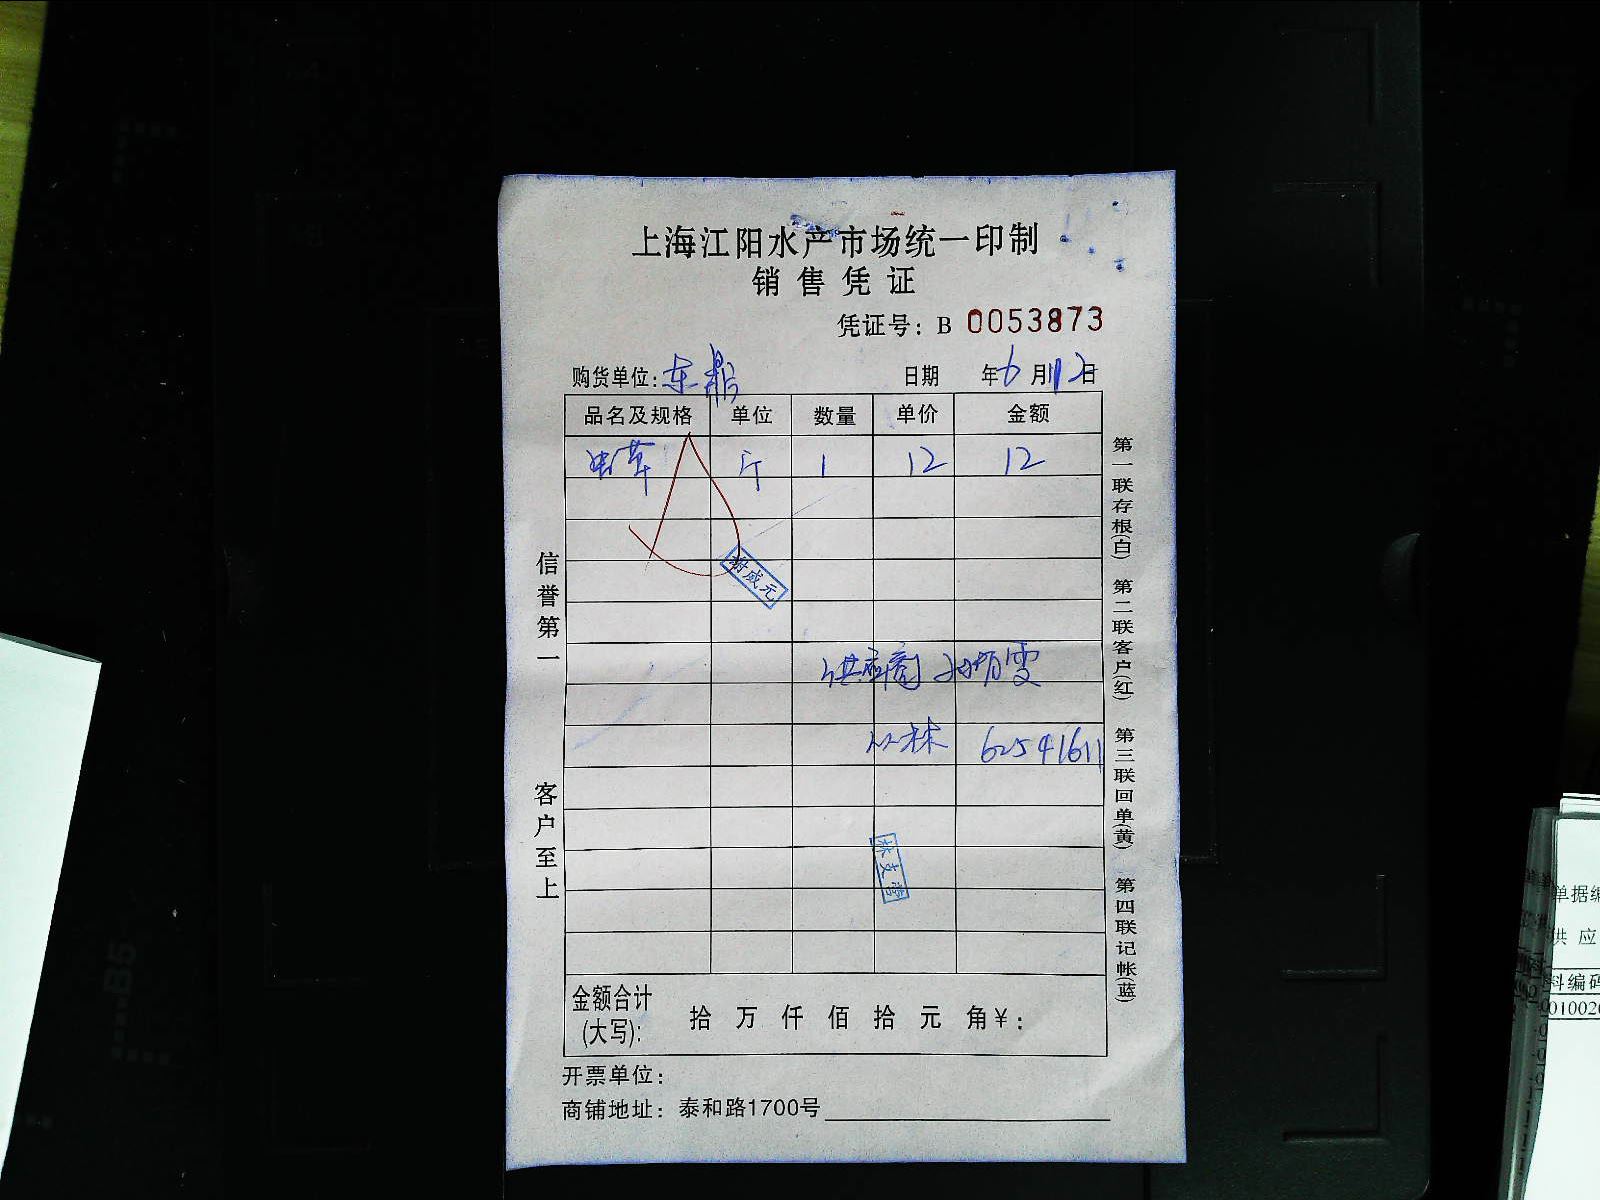 上海江阳水产市场统一印制
销售凭证
凭证号：B 0053873
购货单位：东鼎 日期 年6月12日
品名及规格 单位 数量 单价 金额
虫草 斤 1 12 12
谢成元
供应商
小林 62541611
林支营
金额合计
(大写)： 拾 万 仟 佰 拾 元 角￥：
开票单位：
商铺地址：泰和路1700号
信誉第一 客户至上
第一联存根(白) 第二联客户(红) 第三联回单(黄) 第四联记帐(蓝)
B5
单据编
供 应
料编码